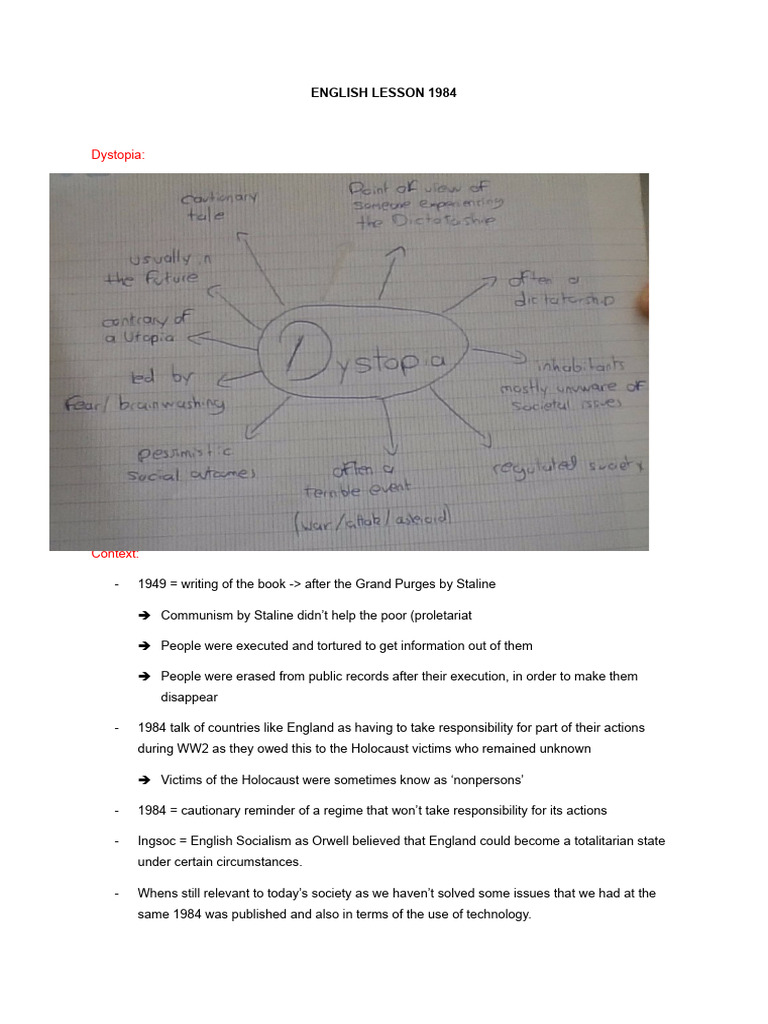 ENGLISH LESSON 1984
Dystopia:
cautionary
tale
Point of view of
someone experiencing
the Dictatorship
usually in
the future
often a
dictatorship
contrary of
a Utopia
Dystopia
inhabitants
mostly unaware of
societal issues
led by
fear/ brainwashing
pessimistic
social outcomes
often a
terrible event
(war/attak/asteroid)
regulated society
Context:
- 1949 = writing of the book -> after the Grand Purges by Staline
➔ Communism by Staline didn’t help the poor (proletariat
➔ People were executed and tortured to get information out of them
➔ People were erased from public records after their execution, in order to make them
disappear
- 1984 talk of countries like England as having to take responsibility for part of their actions
during WW2 as they owed this to the Holocaust victims who remained unknown
➔ Victims of the Holocaust were sometimes know as ‘nonpersons’
- 1984 = cautionary reminder of a regime that won’t take responsibility for its actions
- Ingsoc = English Socialism as Orwell believed that England could become a totalitarian state
under certain circumstances.
- Whens still relevant to today’s society as we haven’t solved some issues that we had at the
same 1984 was published and also in terms of the use of technology.